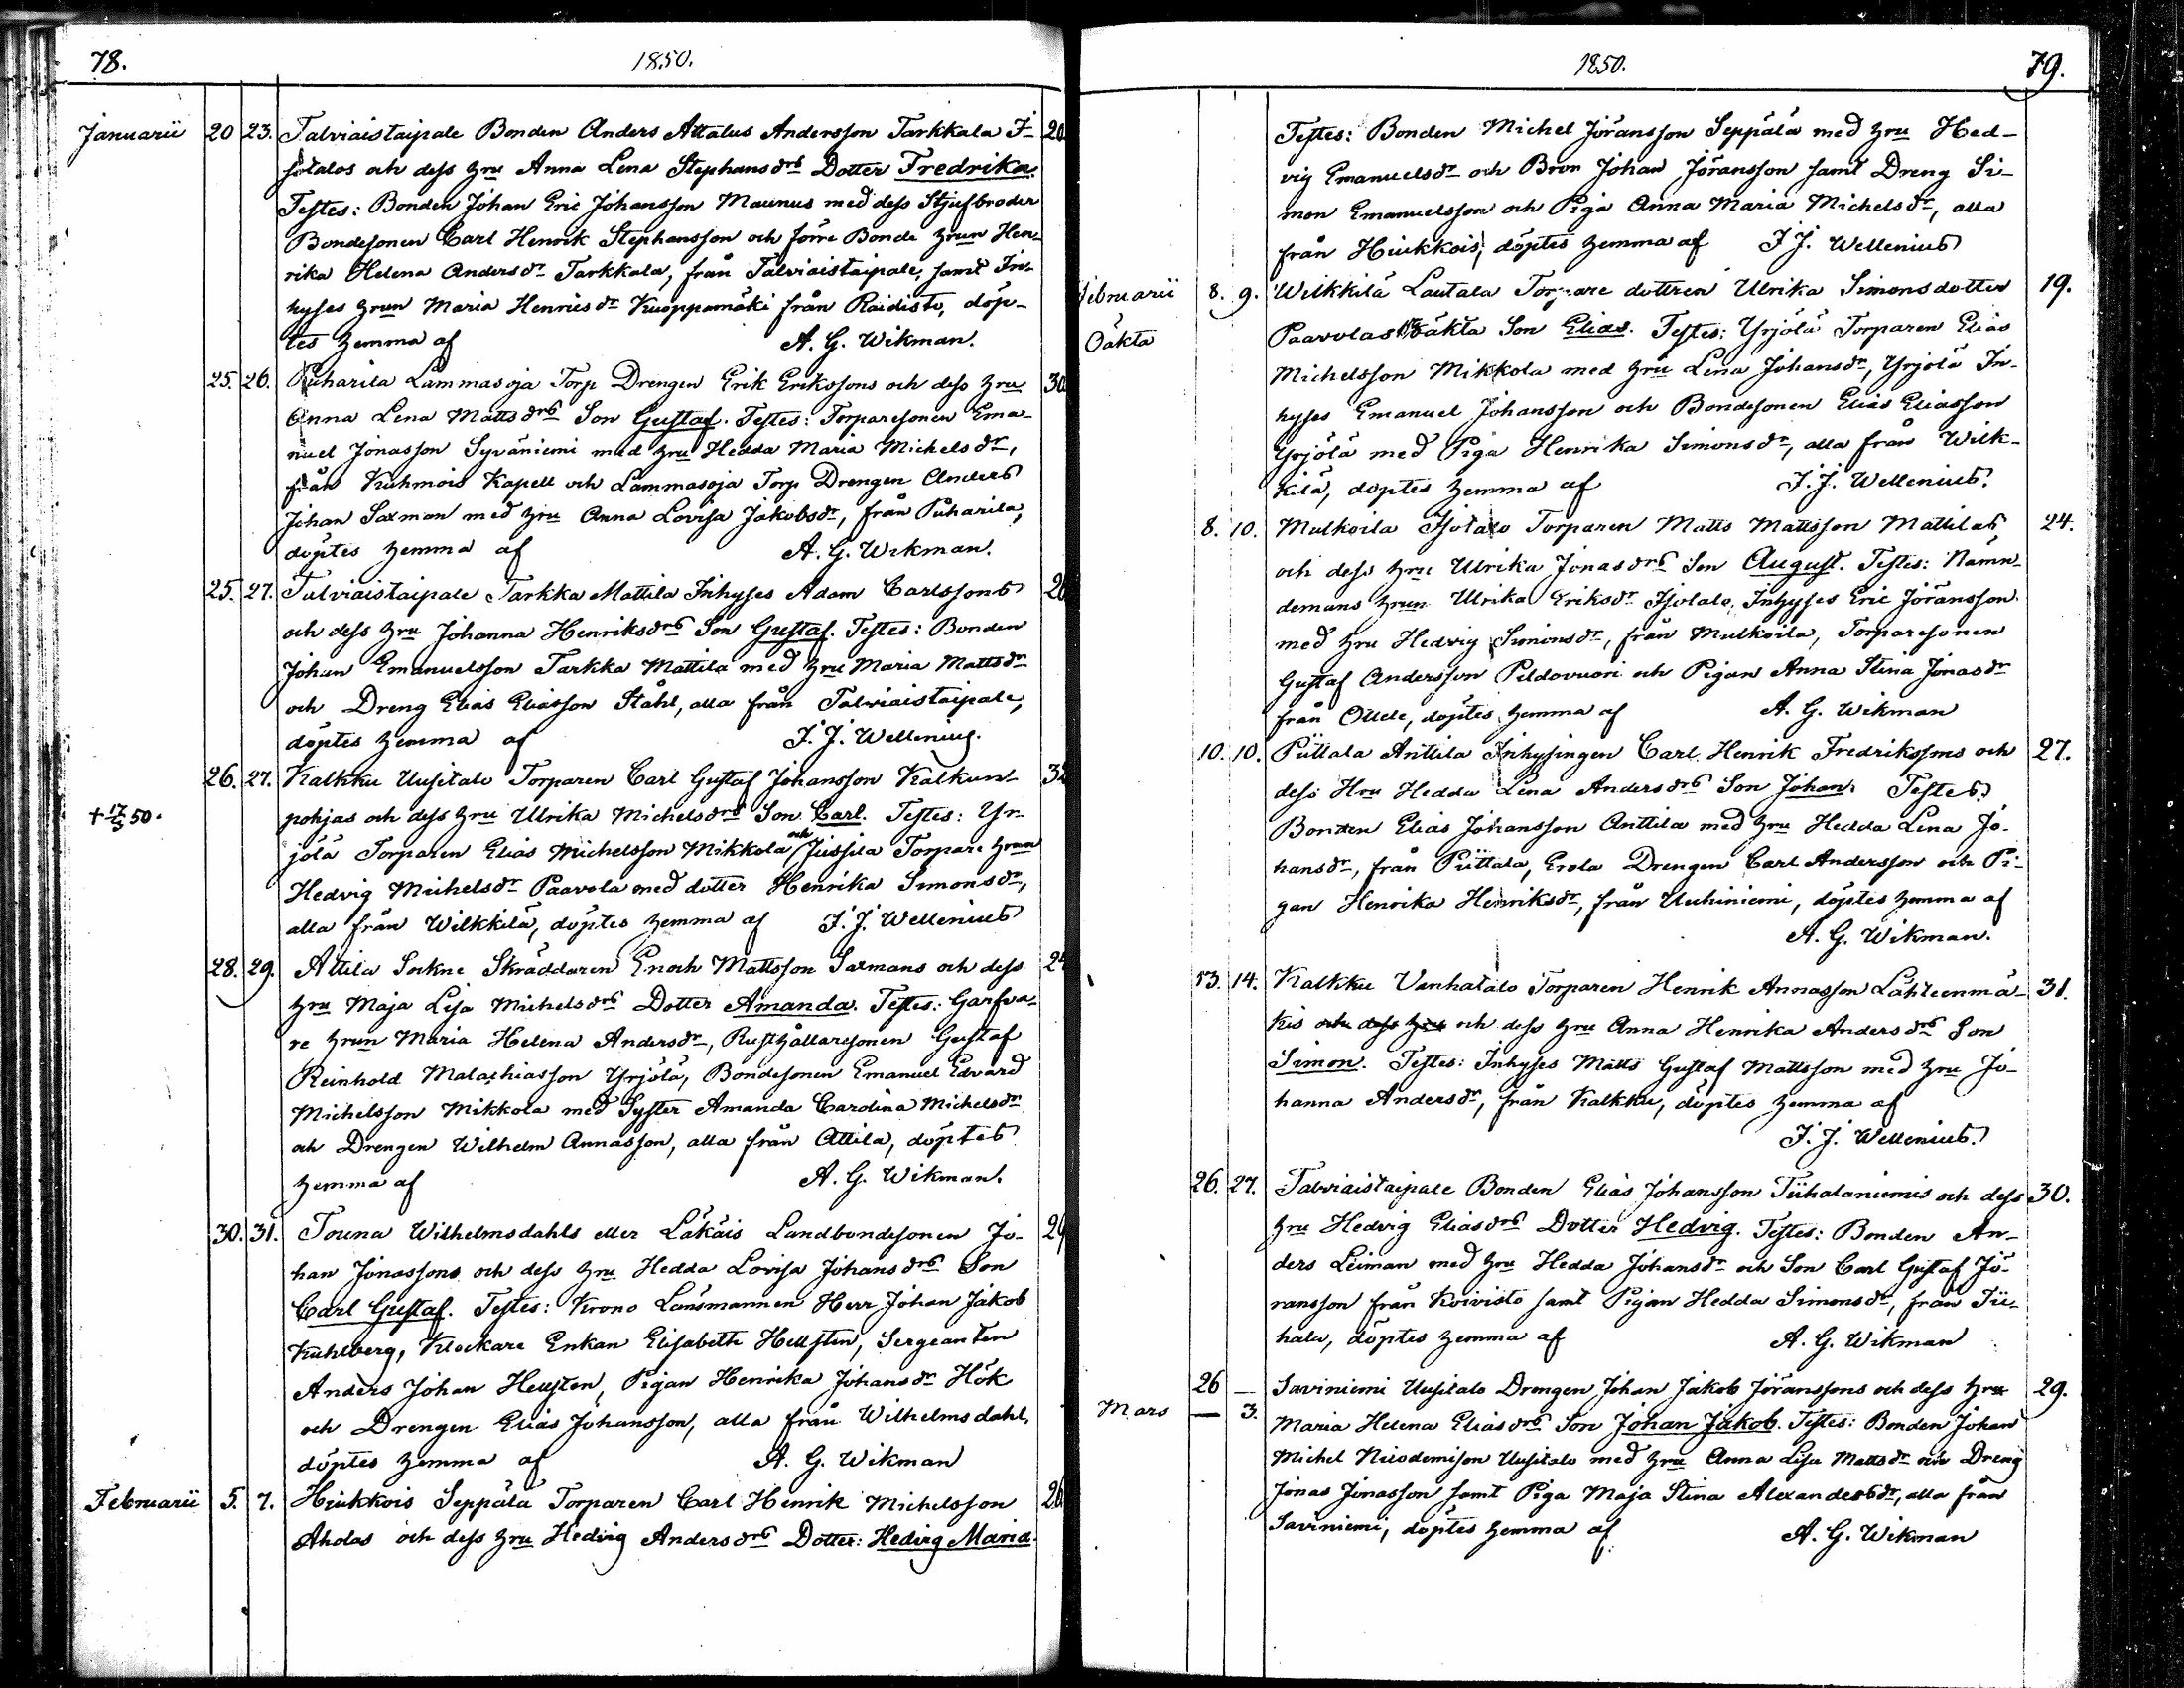 78. 1850.
Januarii 20 23. Talviaistaipale Bonden Anders Attalus Andersson Tarkkala I- 20
sotalos och dess hru Anna Lena Stephansdrs Dotter Fredrika.
Testes: Bonden Johan Eric Johansson Maunus med dess Stjufbroder
Bondesonen Carl Henrik Stephansson och förre Bonde hrun Hen-
rika Helena Andersdr Tarkkala, från Talviaistaipale, samt In-
hyses hrun Maria Henricsdr Kuoppamäki från Raidisto, döp-
tes hemma af A. G. Wikman.
25. 26. Puharila Lammasoja Torp Drengen Erik Erikssons och dess hru 30
Anna Lena Mattsdrs Son Gustaf. Testes: Torparesonen Ema-
nuel Jonasson Syväniemi med hru Hedda Maria Michelsdr,
från Kuhmois Kapell och Lammasoja Torp Drengen Anders
Johan Saxman med hru Anna Lovisa Jakobsdr, från Puharila,
döptes hemma af A. G. Wikman.
25. 27. Talviaistaipale Tarkka Mattila Inhyses Adam Carlssons
och dess hru Johanna Henriksdrs Son Gustaf. Testes: Bonden
Johan Emanuelsson Tarkka Mattila med hru Maria Mattsdr
och Dreng Elias Eliasson Ståhl, alla från Talviaistaipale,
döptes hemma af J. J. Wellenius.
26. 27. Kalkku Uusitalo Torparen Carl Gustaf Johansson Kalkun-
+ 17/3 50. pohjas och dess hru Ulrika Michelsdrs Son Carl. Testes: Yr-
jölä Torparen Elias Michelsson Mikkola och Jussila Torpare hrun
Hedvig Michelsdr Paavola med dotter Henrika Simonsdr,
alla från Wilkkilä, döptes hemma af J. J. Wellenius
28. 29. Attila Sockne Skräddaren Enoch Mattsson Saxmans och dess
hru Maja Lisa Michelsdrs Dotter Amanda. Testes: Garfva-
re hrun Maria Helena Andersdr, Rusthållaresonen Gustaf
Reinhold Malachiasson Yrjölä, Bondesonen Emanuel Edvard
Michelsson Mikkola med Syster Amanda Carolina Michelsdr
och Drengen Wilhelm Annasson, alla från Attila, döptes
hemma af A. G. Wikman.
30. 31. Touna Wilhelmsdahls eller Läkäis Landbondesonen Jo-
han Jonassons och dess hru Hedda Lovisa Johansdrs Son
Carl Gustaf. Testes: Krono Länsmannen Herr Johan Jakob
Kuhlberg, Klockare Enkan Elisabeth Hellsten, Sergeanten
Anders Johan Hellsten, Pigan Henrika Johansdr Hök
och Drengen Elias Johansson, alla från Wilhelmsdahl,
döptes hemma af A. G. Wikman
Februarii 5. 7. Hiukkois Seppälä Torparen Carl Henrik Michelsson 26
Aholas och dess hru Hedvig Andersdrs Dotter: Hedvig Maria.
1850. 79.
Testes: Bonden Michel Jöransson Seppälä med hru Hed-
vig Emanuelsdr och Bron Johan Jöransson samt Dreng Si-
mon Emanuelsson och Piga Anna Maria Michelsdr, alla
från Hiukkois, döptes hemma af J. J. Wellenius
Februarii 8. 9. Wilkkilä Lautala Torpare dottren Ulrika Simonsdotter 19.
Oäkta Paavolas oäkta Son Elias. Testes: Yrjölä Torparen Elias
Michelsson Mikkola med hru Lena Johansdr, Yrjölä In-
hyses Emanuel Johansson och Bondesonen Elias Eliasson
Yrjölä med Piga Henrika Simonsdr, alla från Wilk-
kilä, döptes hemma af J. J. Wellenius.
8. 10. Mulkoila Isotalo Torparen Matts Mattsson Mattilas 24.
och dess hru Ulrika Jonasdrs Son August. Testes: Nämn-
demans hrun Ulrika Eriksdr Isotalo, Inhyses Eric Jöransson
med hru Hedvig Simonsdr, från Mulkoila, Torparesonen
Gustaf Andersson Peldovuori och Pigan Anna Stina Jonasdr
från Ollele, döptes hemma af A. G. Wikman
10. 10. Püttala Anttila Inhysingen Carl Henrik Fredrikssons och 27.
dess Hru Hedda Lena Andersdrs Son Johan. Testes:
Bonden Elias Johansson Anttila med hru Hedda Lena Jo-
hansdr, från Püttala, Erola Drengen Carl Andersson och Pi-
gan Henrika Henriksdr, från Uuhiniemi, döptes hemma af
A. G. Wikman.
13. 14. Kalkku Vanhatalo Torparen Henrik Annasson Lähteenmä- 31.
kis och dess hru och dess hru Anna Henrika Andersdrs Son
Simon. Testes: Inhyses Matts Gustaf Mattsson med hru Jo-
hanna Andersdr, från Kalkku, döptes hemma af
J. J. Wellenius.
26. 27. Talviaistaipale Bonden Elias Johansson Tiihalaniemis och dess 30.
hru Hedvig Eliasdrs Dotter Hedvig. Testes: Bonden An-
ders Leiman med hru Hedda Johansdr och Son Carl Gustaf Jö-
ransson från Koivisto samt Pigan Hedda Simonsdr, från Tii-
hala, döptes hemma af A. G. Wikman
26 — Saviniemi Uusitalo Drengen Johan Jakob Jöranssons och dess hru 29.
Mars — 3. Maria Helena Eliasdrs Son Johan Jakob. Testes: Bonden Johan
Michel Nicodemison Uusitalo med hru Anna Lisa Mattsdr och Dreng
Jonas Jonasson samt Piga Maja Stina Alexandersdr, alla från
Saviniemi, döptes hemma af A. G. Wikman